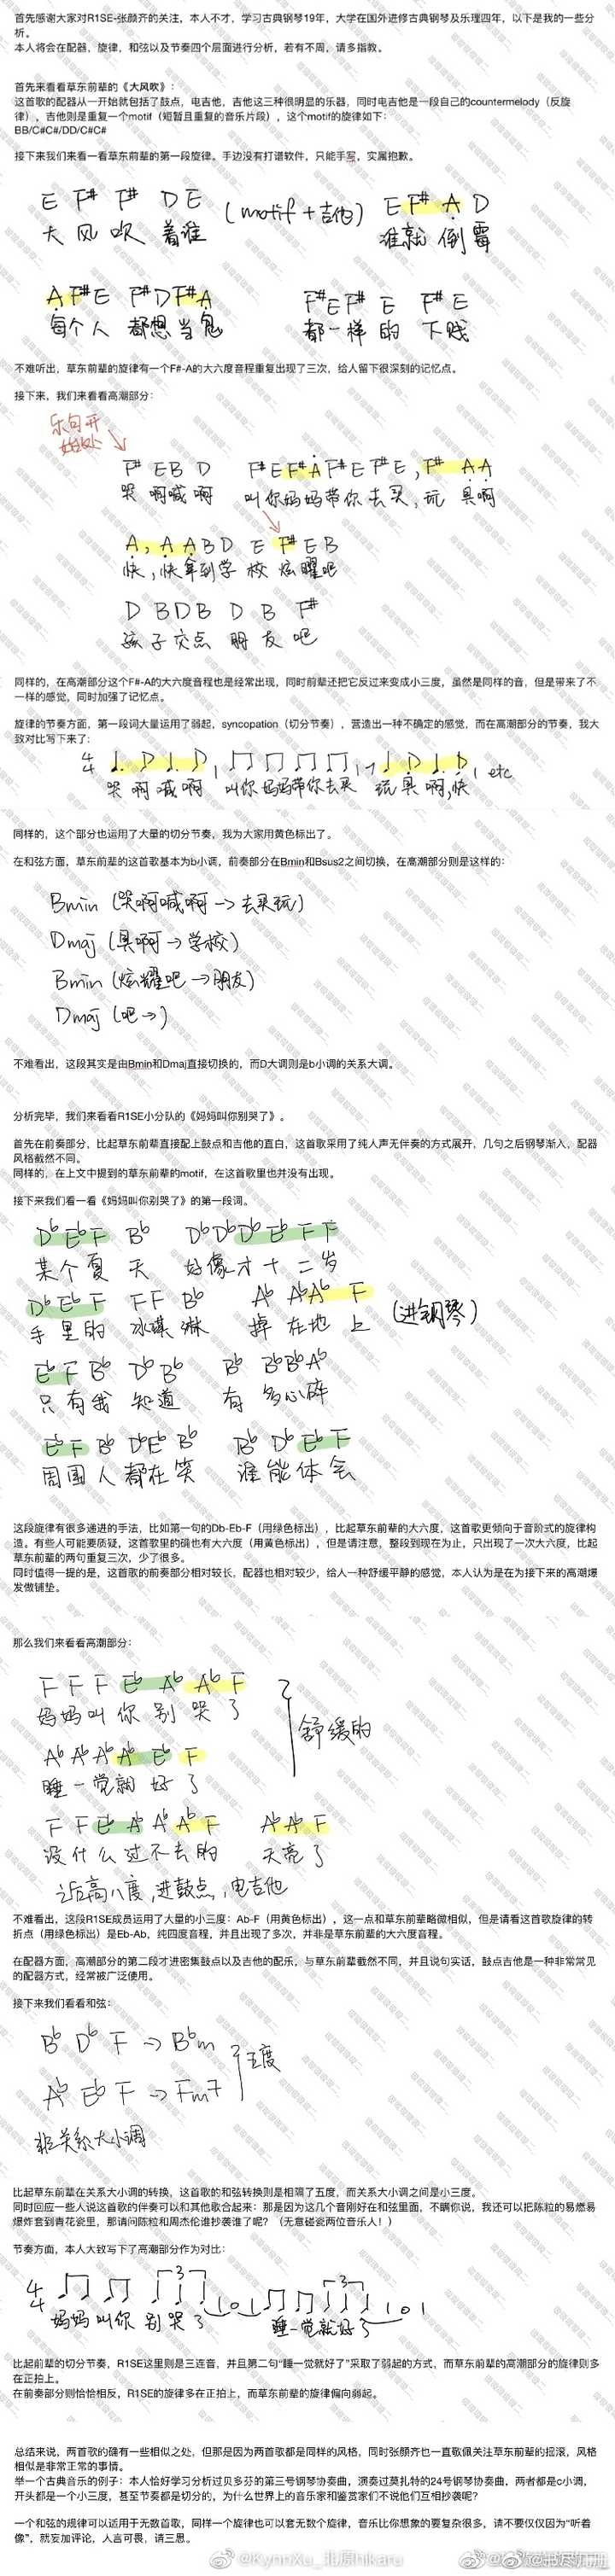 首先感谢大家对R1SE-张颜齐的关注，本人不才，学习古典钢琴19年，大学在国外进修古典钢琴及乐理四年，以下是我的一些分
析。
本人将会在配器，旋律，和弦以及节奏四个层面进行分析，若有不周，请多指教。
首先来看看草东前辈的《大风吹》：
这首歌的配器从一开始就包括了鼓点，电吉他，吉他这三种很明显的乐器，同时电吉他是一段自己的countermelody（反旋
律），吉他则是重复一个motif（短暂且重复的音乐片段），这个motif的旋律如下：
BB/C#C#/DD/C#C#
接下来我们来看一看草东前辈的第一段旋律。手边没有打谱软件，只能手写，实属抱歉。
E F# F# D E （motif+吉他） E F# A D
大 风 吹 着谁 谁就 倒霉
A F# E F# D F# A F# E F# E F# E
每个人 都想当鬼 都一样的 下贱
不难听出，草东前辈的旋律有一个F#-A的大六度音程重复出现了三次，给人留下很深刻的记忆点。
接下来，我们来看看高潮部分：
乐句开
始处
F# E B D F# E F# A F# E F# E , F# A A
哭 啊喊 啊 叫你妈妈带你去买，玩 具啊
A , A A B D E F# E B
快，快拿到学 校 炫耀吧
D B D B D B F#
孩子交点 朋友 吧
同样的，在高潮部分这个F#-A的大六度音程也是经常出现，同时前辈还把它反过来变成小三度，虽然是同样的音，但是带来了不
一样的感觉，同时加强了记忆点。
旋律的节奏方面，第一段词大量运用了弱起，syncopation（切分节奏），营造出一种不确定的感觉，而在高潮部分的节奏，我大
致对比写下来了：
4
4 etc
哭 啊喊啊 叫你妈妈带你去买 玩具啊,快
同样的，这个部分也运用了大量的切分节奏，我为大家用黄色标出了。
在和弦方面，草东前辈的这首歌基本为b小调，前奏部分在Bmin和Bsus2之间切换，在高潮部分则是这样的：
Bmin (哭啊喊啊→去买玩)
Dmaj (具啊→学校)
Bmin (炫耀吧→朋友)
Dmaj (吧→)
不难看出，这段其实是由Bmin和Dmaj直接切换的，而D大调则是b小调的关系大调。
分析完毕，我们来看看R1SE小分队的《妈妈叫你别哭了》。
首先在前奏部分，比起草东前辈直接配上鼓点和吉他的直白，这首歌采用了纯人声无伴奏的方式展开，几句之后钢琴渐入，配器
风格截然不同。
同样的，在上文中提到的草东前辈的motif，在这首歌里也并没有出现。
接下来我们看一看《妈妈叫你别哭了》的第一段词。
Db Eb F Bb Db Db Db Eb F F
某个夏 天 好像才十二岁
Db Eb F F F Bb Ab Ab Ab F
手里的 冰琪淋 掉在地 上 （进钢琴）
Eb F Bb Db Bb Bb Bb Bb Ab
只有我 知道 有 多心碎
Eb F Bb Db Eb Bb Bb Db Eb F
周围人 都在笑 谁能体会
这段旋律有很多递进的手法，比如第一句的Db-Eb-F（用绿色标出），比起草东前辈的大六度，这首歌更倾向于音阶式的旋律构
造。有些人可能要质疑，这首歌里的确也有大六度（用黄色标出），但是请注意，整段到现在为止，只出现了一次大六度，比起
草东前辈的两句重复三次，少了很多。
同时值得一提的是，这首歌的前奏部分相对较长，配器也相对较少，给人一种舒缓平静的感觉，本人认为是在为接下来的高潮爆
发做铺垫。
那么我们来看看高潮部分：
F F F Eb Ab Ab F
妈妈叫你 别 哭了
舒缓的
Ab Ab Ab Ab Eb F
睡一觉就 好了
F F Eb Ab Ab Ab F Ab Ab F
没什么过不去的 天亮了
之后高八度，进鼓点，电吉他
不难看出，这段R1SE成员运用了大量的小三度：Ab-F（用黄色标出），这一点和草东前辈略微相似，但是请看这首歌旋律的转
折点（用绿色标出）是Eb-Ab，纯四度音程，并且出现了多次，并非是草东前辈的大六度音程。
在配器方面，高潮部分的第二段才进密集鼓点以及吉他的配乐，与草东前辈截然不同，并且说句实话，鼓点吉他是一种非常常见
的配器方式，经常被广泛使用。
接下来我们看看和弦：
Bb Db F → Bbm
五度
Ab Eb F → Fm7
非关系大小调
比起草东前辈在关系大小调的转换，这首歌的和弦转换则是相隔了五度，而关系大小调之间是小三度。
同时回应一些人说这首歌的伴奏可以和其他歌合起来：那是因为这几个音刚好在和弦里面，不瞒你说，我还可以把陈粒的易燃易
爆炸套到青花瓷里，那请问陈粒和周杰伦谁抄袭谁了呢？（无意碰瓷两位音乐人！）
节奏方面，本人大致写下了高潮部分作为对比：
4
4 3 3
妈妈叫你 别哭了 睡一觉就好了
比起前辈的切分节奏，R1SE这里则是三连音，并且第二句“睡一觉就好了”采取了弱起的方式，而草东前辈的高潮部分的旋律则多
在正拍上。
在前奏部分则恰恰相反，R1SE的旋律多在正拍上，而草东前辈的旋律偏向弱起。
总结来说，两首歌的确有一些相似之处，但那是因为两首歌都是同样的风格，同时张颜齐也一直敬佩关注草东前辈的摇滚，风格
相似是非常正常的事情。
举一个古典音乐的例子：本人恰好学习分析过贝多芬的第三号钢琴协奏曲，演奏过莫扎特的24号钢琴协奏曲，两者都是c小调，
开头都是一个小三度，甚至节奏都是切分的，为什么世界上的音乐家和鉴赏家们不说他们互相抄袭呢？
一个和弦的规律可以适用于无数首歌，同样一个旋律也可以套无数个旋律，音乐比你想象的要复杂很多，请不要仅仅因为“听着
像”，就妄加评论，人言可畏，请三思。
@KynnXu_北原hikaru